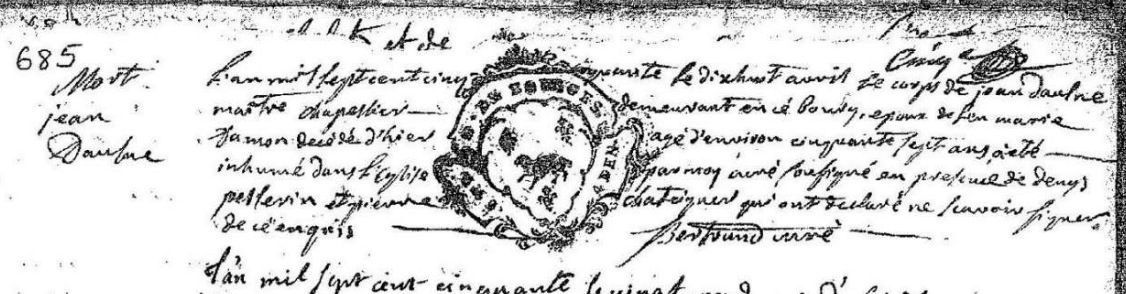 et de
685
Mort
jean
Daulne
L'an mil sept cent cinquante le dixhuit avril le corps de jean daulne
maitre chapellier demeurant en ce bourg, epoux de feu marie
damon decédé d'hier agé d'environ cinquante sept ans, a été
inhumé dans l'eglise par moy curé soussigné en presence de denys
pellerin et pierre chateigner qui ont declaré ne scavoir signer
de ce enquis Bertrand curé
GEN. DE BOURGES
4 DEN
L'an mil sept cent cinquante le vingt